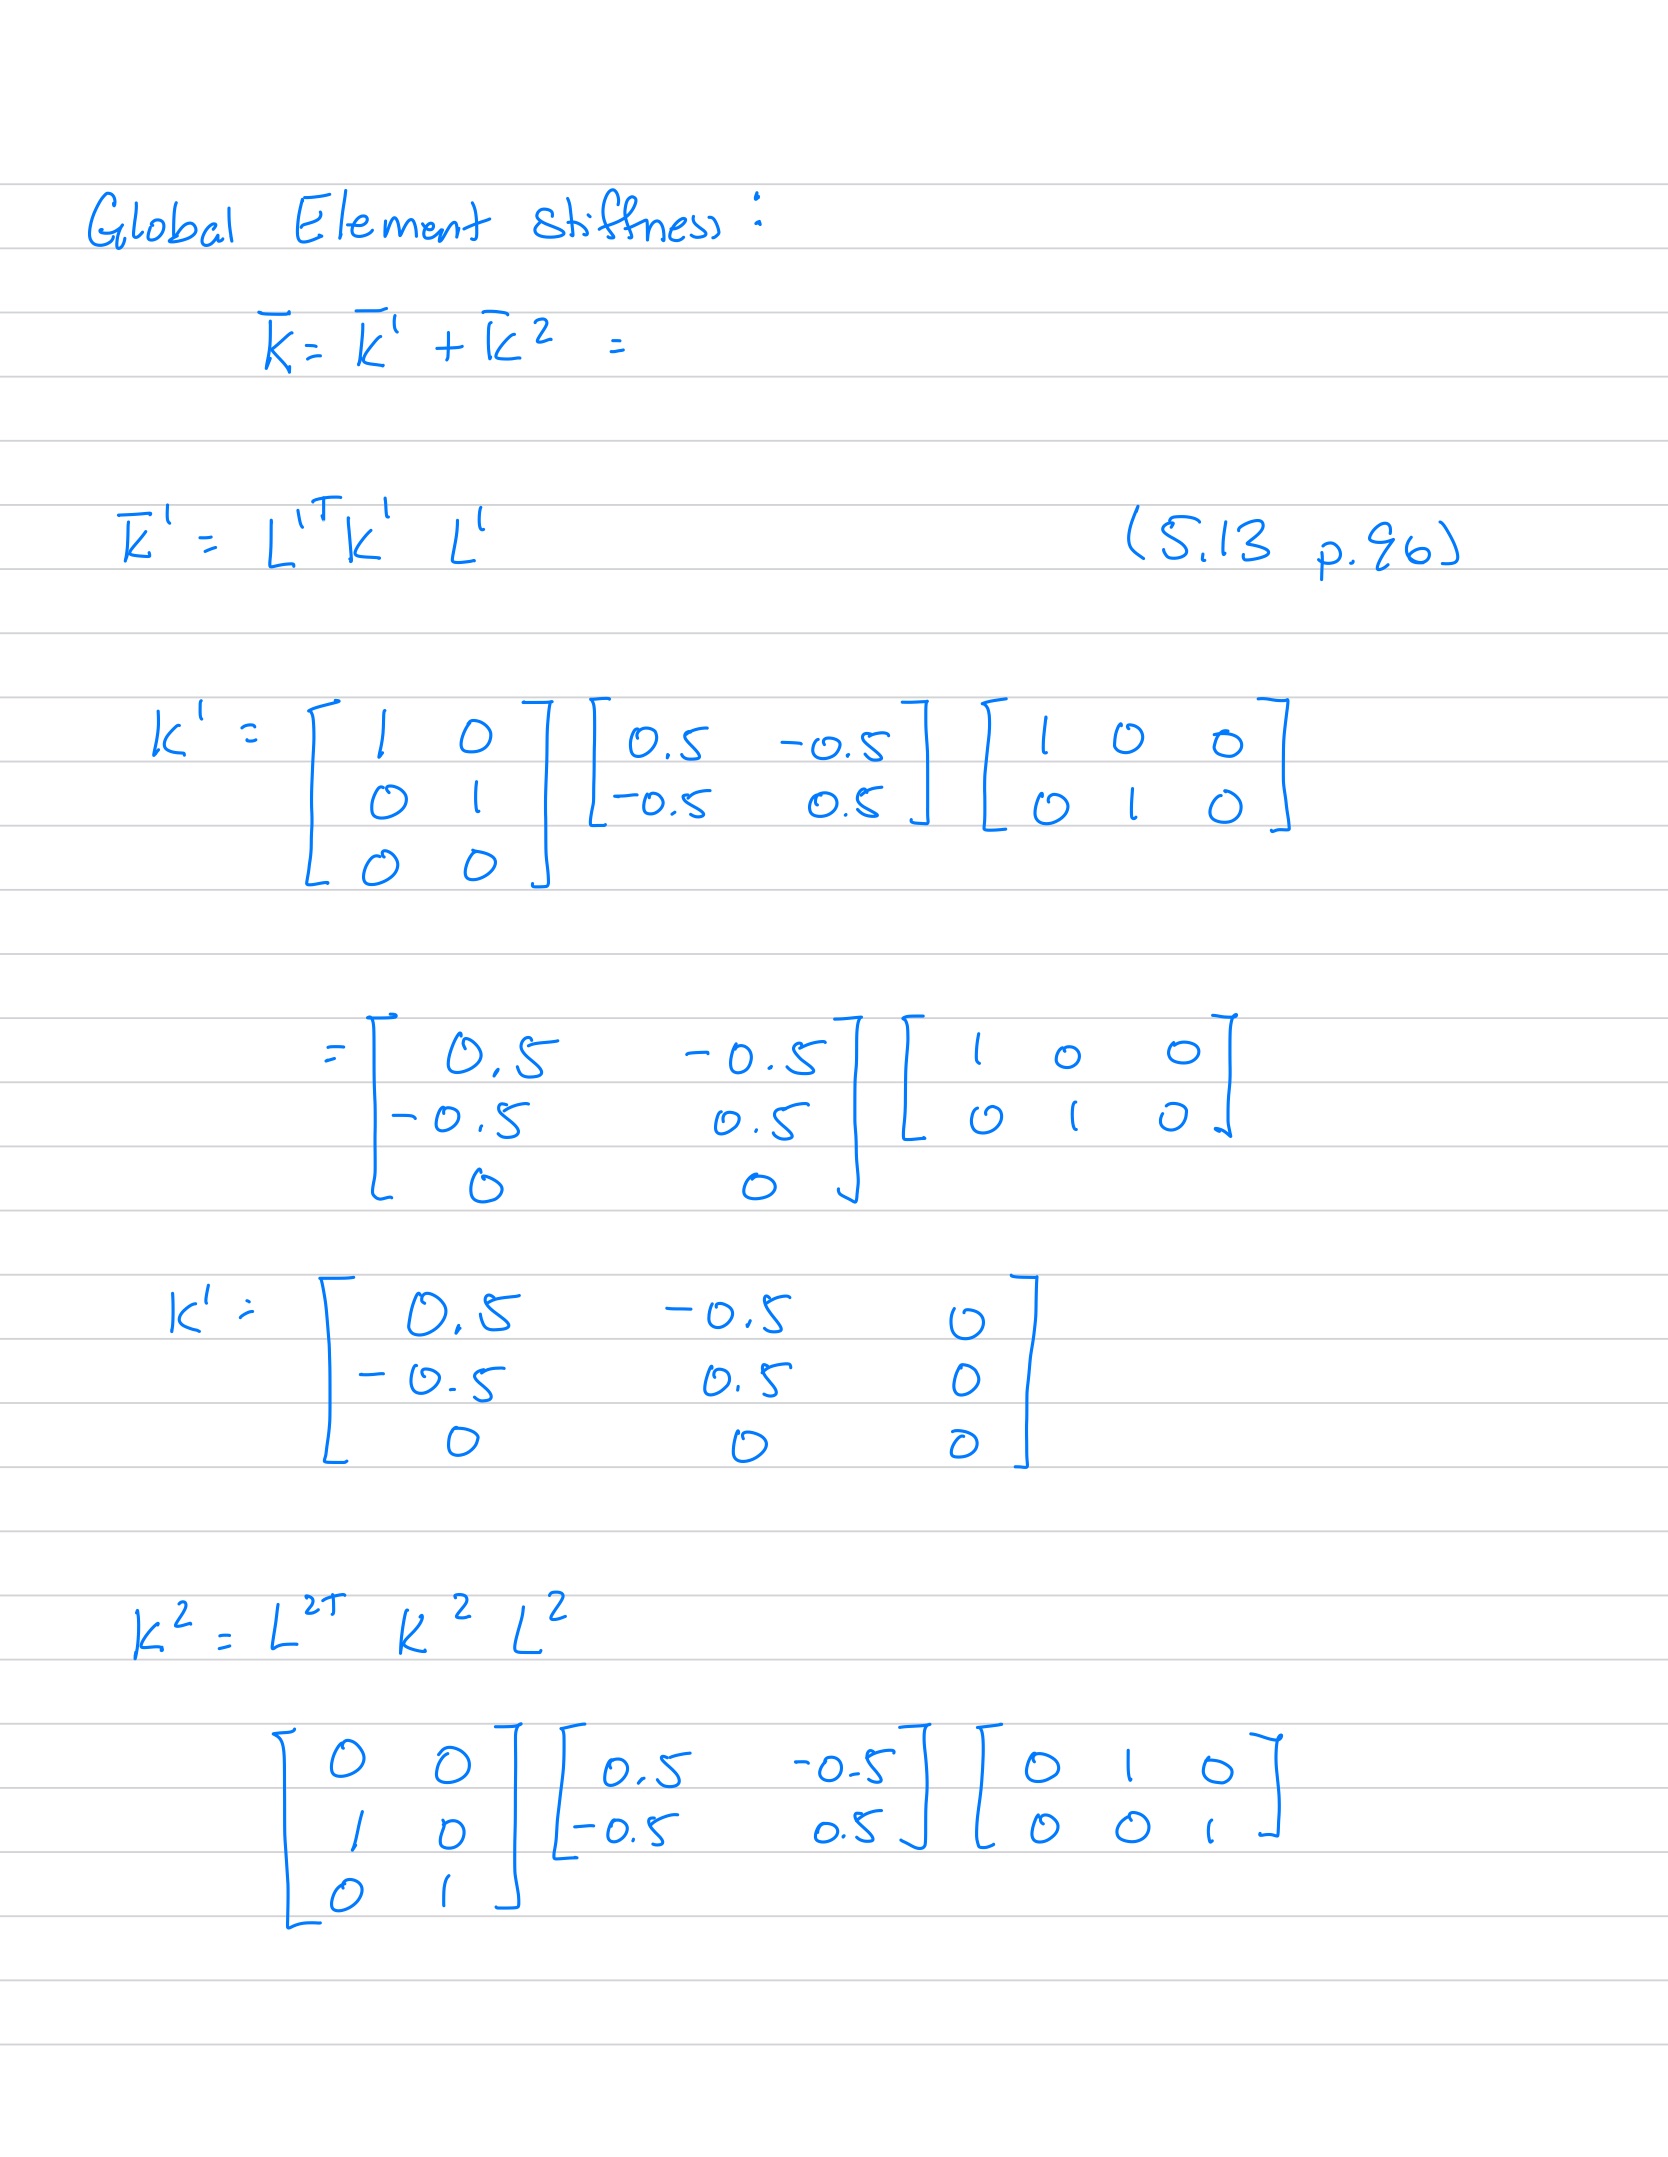 Global Element stiffness :
K̅ = K̅¹ + K̅² =
K̅¹ = L¹ᵀ K¹ L¹ (5.13 p.96)
K¹ = [ 1 0 ] [ 0.5 -0.5 ] [ 1 0 0 ]
[ 0 1 ] [ -0.5 0.5 ] [ 0 1 0 ]
[ 0 0 ]
= [ 0.5 -0.5 ] [ 1 0 0 ]
[ -0.5 0.5 ] [ 0 1 0 ]
[ 0 0 ]
K¹ = [ 0.5 -0.5 0 ]
[ -0.5 0.5 0 ]
[ 0 0 0 ]
K² = L²ᵀ K² L²
[ 0 0 ] [ 0.5 -0.5 ] [ 0 1 0 ]
[ 1 0 ] [ -0.5 0.5 ] [ 0 0 1 ]
[ 0 1 ]